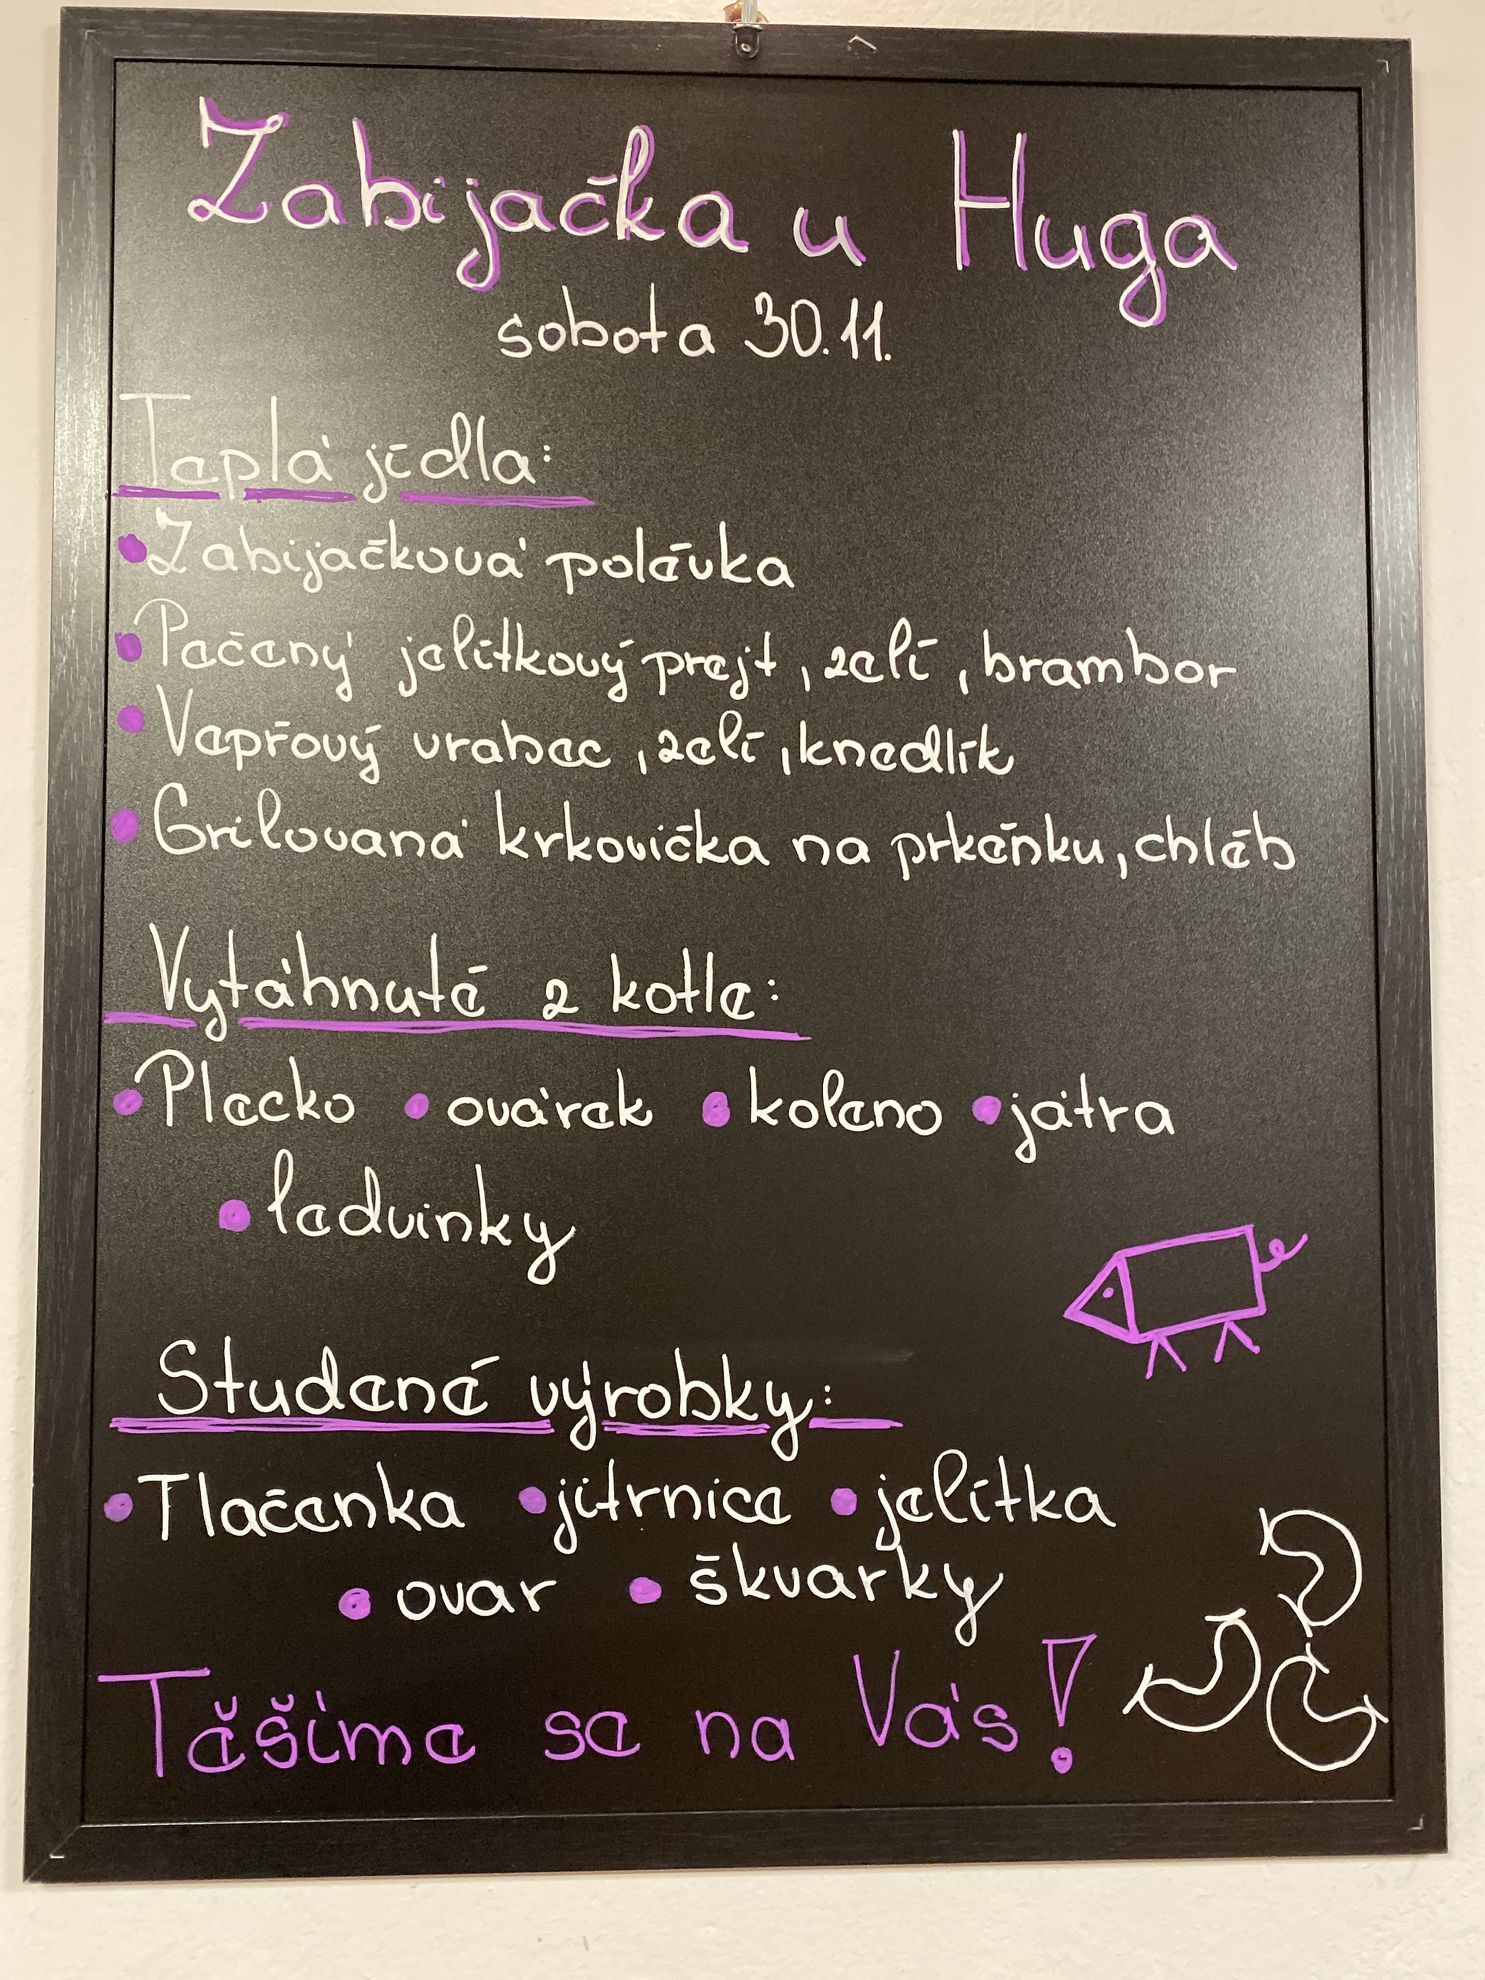 Zabijačka u Huga
sobota 30.11.
Teplá jídla:
• Zabijačková polévka
• Pečený jelítkový prejt, zelí, brambor
• Vepřový vrabec, zelí, knedlík
• Grilovaná krkovička na prkénku, chléb
Vytáhnuté z kotle:
• Plecko • ovárek • koleno • játra
• ledvinky
Studené výrobky:
• Tlačenka • jitrnice • jelítka
• ovar • škvarky
Těšíme se na Vás!